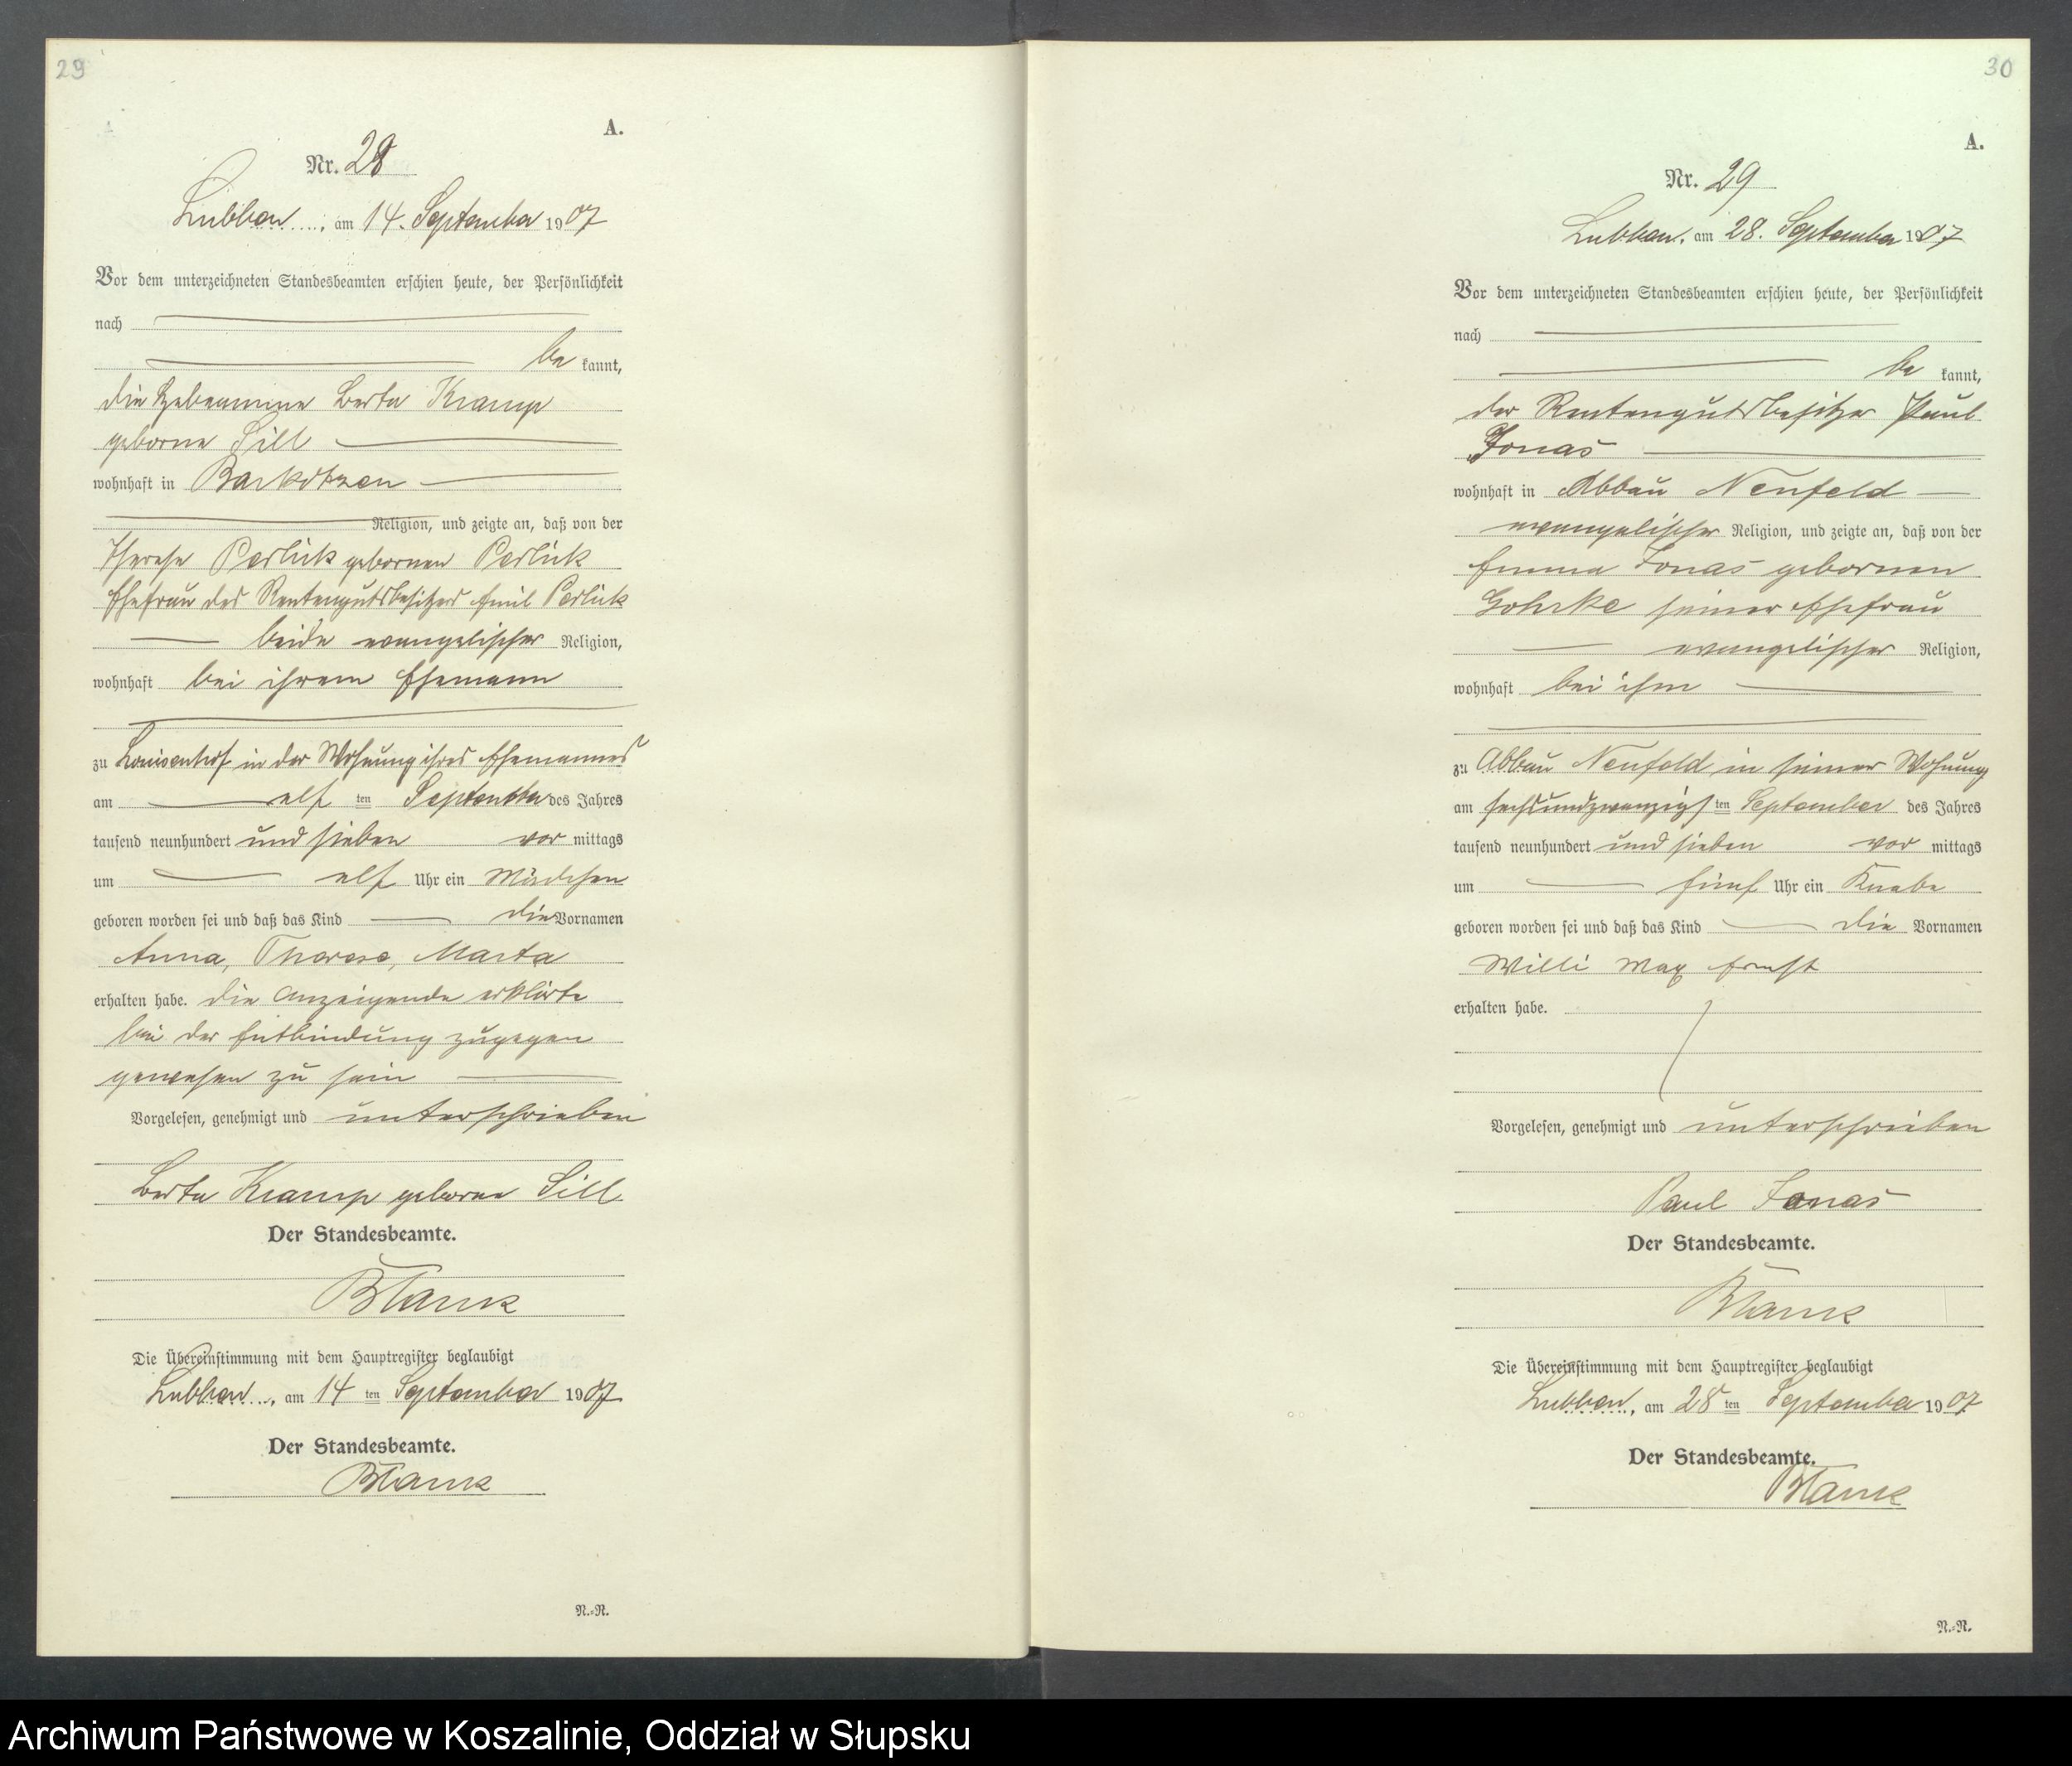 29
A.
Nr. 28
Lubben, am 14. September 1907
Vor dem unterzeichneten Standesbeamten erschien heute, der Persönlichkeit
nach
be kannt,
die Hebeamme Berta Kramp
geborne Sill
wohnhaft in Barkotzen
Religion, und zeigte an, daß von der
Therese Perlick gebornen Perlick
Ehefrau des Rentengutsbesitzers Emil Perlick
beide evangelischer Religion,
wohnhaft bei ihrem Ehemann
zu Louisenhof in der Wohnung ihres Ehemannes
am elf ten September des Jahres
tausend neunhundert und sieben vor mittags
um elf Uhr ein Mädchen
geboren worden sei und daß das Kind die Vornamen
Anna, Therese, Marta
erhalten habe. Die Anzeigende erklärte
bei der Entbindung zugegen
gewesen zu sein
Vorgelesen, genehmigt und unterschrieben
Berta Kramp geborne Sill
Der Standesbeamte.
Die Übereinstimmung mit dem Hauptregister beglaubigt
Lubben, am 14 ten September 1907
Der Standesbeamte.
N.-N.
30
A.
Nr. 29
Lubben, am 28. September 1907
Vor dem unterzeichneten Standesbeamten erschien heute, der Persönlichkeit
nach
be kannt,
der Rentengutsbesitzer Paul
Jonas
wohnhaft in Abbau Neufeld
evangelischer Religion, und zeigte an, daß von der
Emma Jonas gebornen
Gohrke seiner Ehefrau
evangelischer Religion,
wohnhaft bei ihm
zu Abbau Neufeld in seiner Wohnung
am sechsundzwanzigs ten September des Jahres
tausend neunhundert und sieben vor mittags
um fünf Uhr ein Knabe
geboren worden sei und daß das Kind die Vornamen
Willi Max Ernst
erhalten habe.
Vorgelesen, genehmigt und unterschrieben
Paul Jonas
Der Standesbeamte.
Die Übereinstimmung mit dem Hauptregister beglaubigt
Lubben, am 28 ten September 1907
Der Standesbeamte.
N.-N.
Archiwum Państwowe w Koszalinie, Oddział w Słupsku